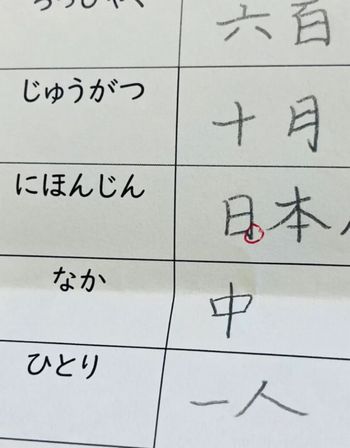 ろっぴゃく 六百
じゅうがつ 十月
にほんじん 日本人
なか 中
ひとり 一人